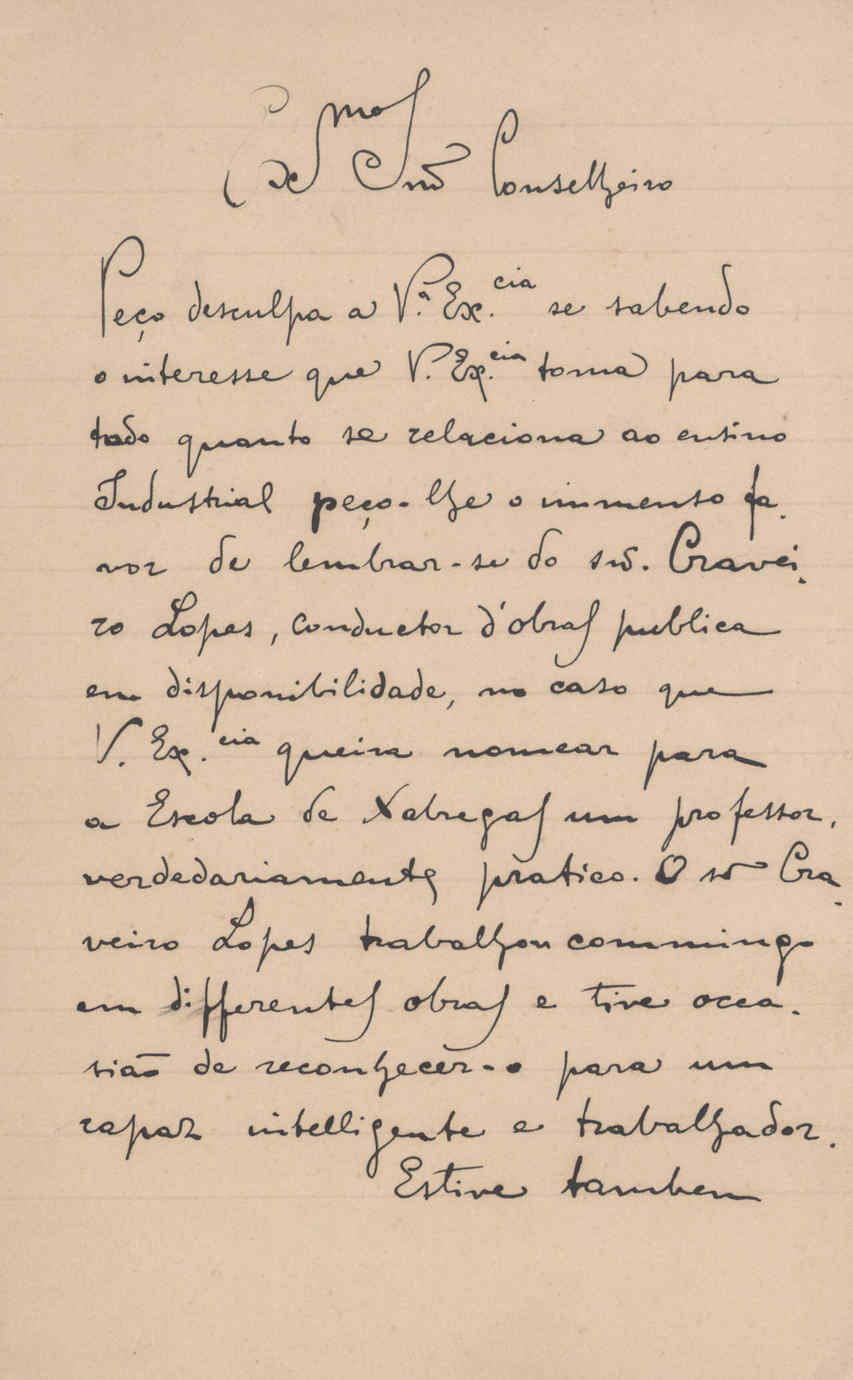 Exmo Snr Conselheiro
Peço desculpa a V.ª Ex.cia se sabendo
o interesse que V. Ex.cia toma para
todo quanto se relaciona ao ensino
Industrial peço-lhe o immenso fa-
vor de lembrar-se do snr. Cravei-
ro Lopes, conductor d'obras publica
em disponibilidade, no caso que
V. Ex.cia queira nomear para
a Escola de Xabregas um professor,
verdedariamente pratico. O snr Cra-
veiro Lopes trabalhou commingo
em differentes obras e tive occa-
sião de reconhecer-o para um
rapaz intelligente e trabalhador.
Estive tambem